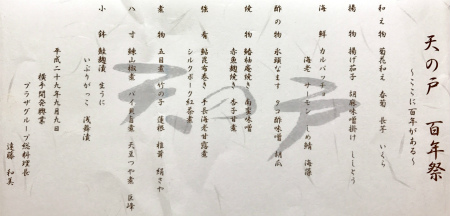 天の戸 百年祭
～ここに百年がある～
和え物 菊花和え 春菊 長芋 いくら
揚げ物 揚げ茄子 胡麻味噌掛け ししとう
海鮮 カルパッチョ
海老 サーモン しめ鯖 海藻
酢の物 氷頭なます タラ酢味噌 胡瓜
焼物 鰆柚庵焼き 南蛮味噌
赤魚麹焼き 杏子甘煮
強肴 鮎昆布巻き 手長海老甘露煮
シルクポーク紅茶煮
煮物 五目煮 竹の子 蓮根 椎茸 絹さや
八寸 練山椒煮 バイ貝旨煮 天豆つや煮 巨峰
小鉢 鮭麹漬 生うに
いぶりがっこ 浅舞漬
平成二十九年九月九日
横手開発興業
プラザグループ総料理長
遠藤 和美
天の戸